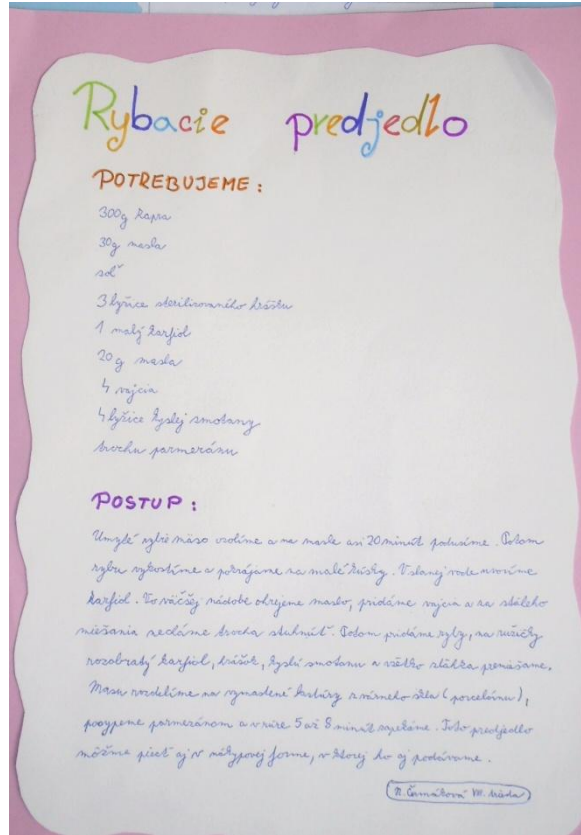 Rybacie predjedlo
POTREBUJEME:
300g kapra
30g masla
soľ
3 lyžice sterilizovaného hrášku
1 malý karfiol
20 g masla
4 vajcia
4 lyžice kyslej smotany
trochu parmezánu
POSTUP:
Umyté rybie mäso osolíme a na masle asi 20 minút podusíme. Potom
rybu vykostíme a pokrájame na malé kúsky. V slanej vode uvaríme
karfiol. Vo väčšej nádobe ohrejeme maslo, pridáme vajcia a za stáleho
miešania necháme trocha stuhnúť. Potom pridáme ryby, na ružičky
rozobratý karfiol, hrášok, kyslú smotanu a všetko zľahka premiešame.
Masu rozdelíme na vymastené kastróly z varného skla (porcelánu),
posypeme parmezánom a v rúre 5 až 8 minút zapekáme. Toto predjedlo
môžme piecť aj v nákypovej forme, v ktorej ho aj podávame.
VI. trieda